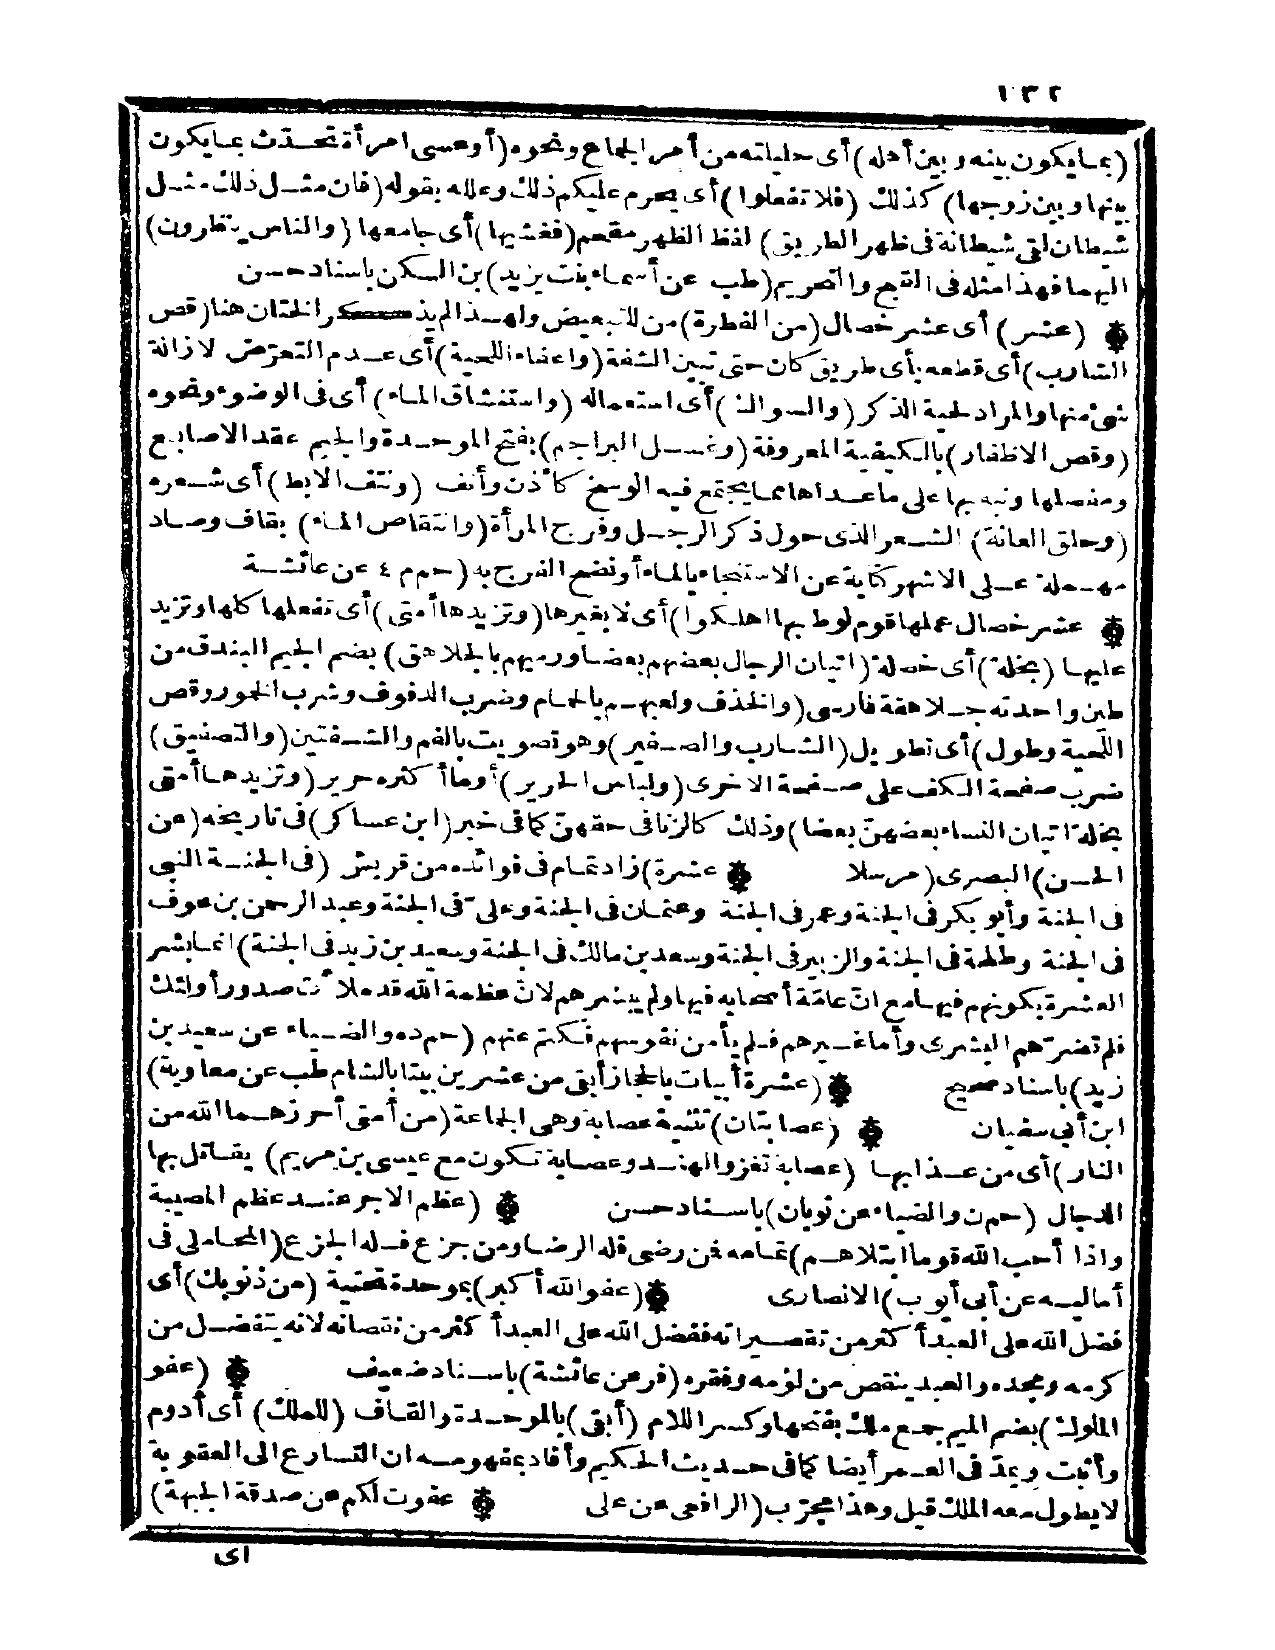 ١٣٢
(بما يكون بينه وبين أهله) أى حليلته من أمر الجماع ونحوه (أو عسى امرأة تحدث بما يكون
بينها وبين زوجها) كذلك (فلا تفعلوا) أى يحرم عليكم ذلك وعلله بقوله (فان مثل ذلك مثل
شيطان لقى شيطانة فى ظهر الطريق) لفظ الظهر مقحم (فغشيها) أى جامعها (والناس ينظرون)
اليهما فهذا مثله فى القبح والتحريم (طب عن أسماء بنت يزيد) بن السكن باسناد حسن
(عشر) أى عشر خصال (من الفطرة) من للتبعيض ولهذا لم يذكر الختان هنا (قص
الشارب) أى قطعه بأى طريق كان حتى تبين الشفة (واعفاء اللحية) أى عدم التعرّض لازالة
شئ منها والمراد لحية الذكر (والسواك) أى استعماله (واستنشاق الماء) أى فى الوضوء ونحوه
(وقص الاظفار) بالكيفية المعروفة (وغسل البراجم) بفتح الموحدة والجيم عقد الاصابع
ومفصلها ونبه بها على ما عداها مما يجتمع فيه الوسخ كأذن وأنف (ونتف الابط) أى شعره
(وحلق العانة) الشعر الذى حول ذكر الرجل وفرج المرأة (وانتقاص الماء) بقاف وصاد
مهملة على الاشهر كناية عن الاستنجاء بالماء أو نضح الفرج به (حم م ٤ عن عائشة
عشر خصال عملها قوم لوط بها اهلكوا) أى لا بغيرها (وتزيدها أمتى) أى تفعلها كلها وتزيد
عليها (بخلة) أى خصلة (اتيان الرجال بعضهم بعضا ورميهم بالجلاهق) بضم الجيم البندق من
طين واحدته جلاهقة فارسى (والخذف ولعبهم بالحمام وضرب الدفوف وشرب الخمور وقص
اللحية وطول) أى تطويل (الشارب والصفير) وهو تصويت بالفم والشفتين (والتصفيق)
ضرب صفحة الكف على صفحة الاخرى (ولباس الحرير) أو ما أكثره حرير (وتزيدها أمتى
بخلة اتيان النساء بعضهنّ بعضا) وذلك كالزنا فى حقهنّ كما فى خبر (ابن عساكر) فى تاريخه (عن
الحسن) البصرى (مرسلا عشرة) زاد تمام فى فوائده من قريش (فى الجنة النبى
فى الجنة وأبو بكر فى الجنة وعمر فى الجنة وعثمان فى الجنة وعلىّ فى الجنة وعبد الرحمن بن عوف
فى الجنة وطلحة فى الجنة والزبير فى الجنة وسعد بن مالك فى الجنة وسعيد بن زيد فى الجنة) انما بشر
العشرة بكونهم فيها مع انّ عامّة أصحابه فيها ولم يبشرهم لانّ عظمة الله قد ملأت صدور أولئك
فلم تضرّهم البشرى وأما غيرهم فلم يأمن نفوسهم فكتم عنهم (حم ده والضياء عن سعيد بن
زيد) باسناد صحيح (عشرة أبيات بالحجاز أبقى من عشرين بيتا بالشام طب عن معاوية)
ابن أبى سفيان (عصابتان) تثنية عصابة وهى الجماعة (من أمتى أحرزهما الله من
النار) أى من عذابها (عصابة تغزو الهند وعصابة تكون مع عيسى بن مريم) يقاتل بها
الدجال (حم ن والضياء عن ثوبان) باسناد حسن (عظم الاجر عند عظم المصيبة
واذا أحب الله قوما ابتلاهم) تمامه فمن رضى فله الرضا ومن جزع فله الجزع (المحاملى فى
أماليه عن أبى أيوب) الانصارى (عفو الله أكبر) بموحدة تحتية (من ذنوبك) أى
فضل الله على العبد أكثر من تقصيراته ففضل الله على العبد أكثر من نقصانه لانه يتفضل من
كرمه ومجده والعبد ينقص من لؤمه وفقره (فر عن عائشة) باسناد ضعيف (عفو
الملوك) بضم الميم جمع ملك بفتحها وكسر اللام (أبقى) بالموحدة والقاف (للملك) أى أدوم
وأثبت ويمدّ فى العمر أيضا كما فى حديث الحكيم وأفاد بمفهومه ان التسارع الى العقوبة
لا يطول معه الملك قيل وهذا مجرّب (الرافعى عن على عفوت لكم عن صدقة الجبهة)
اى